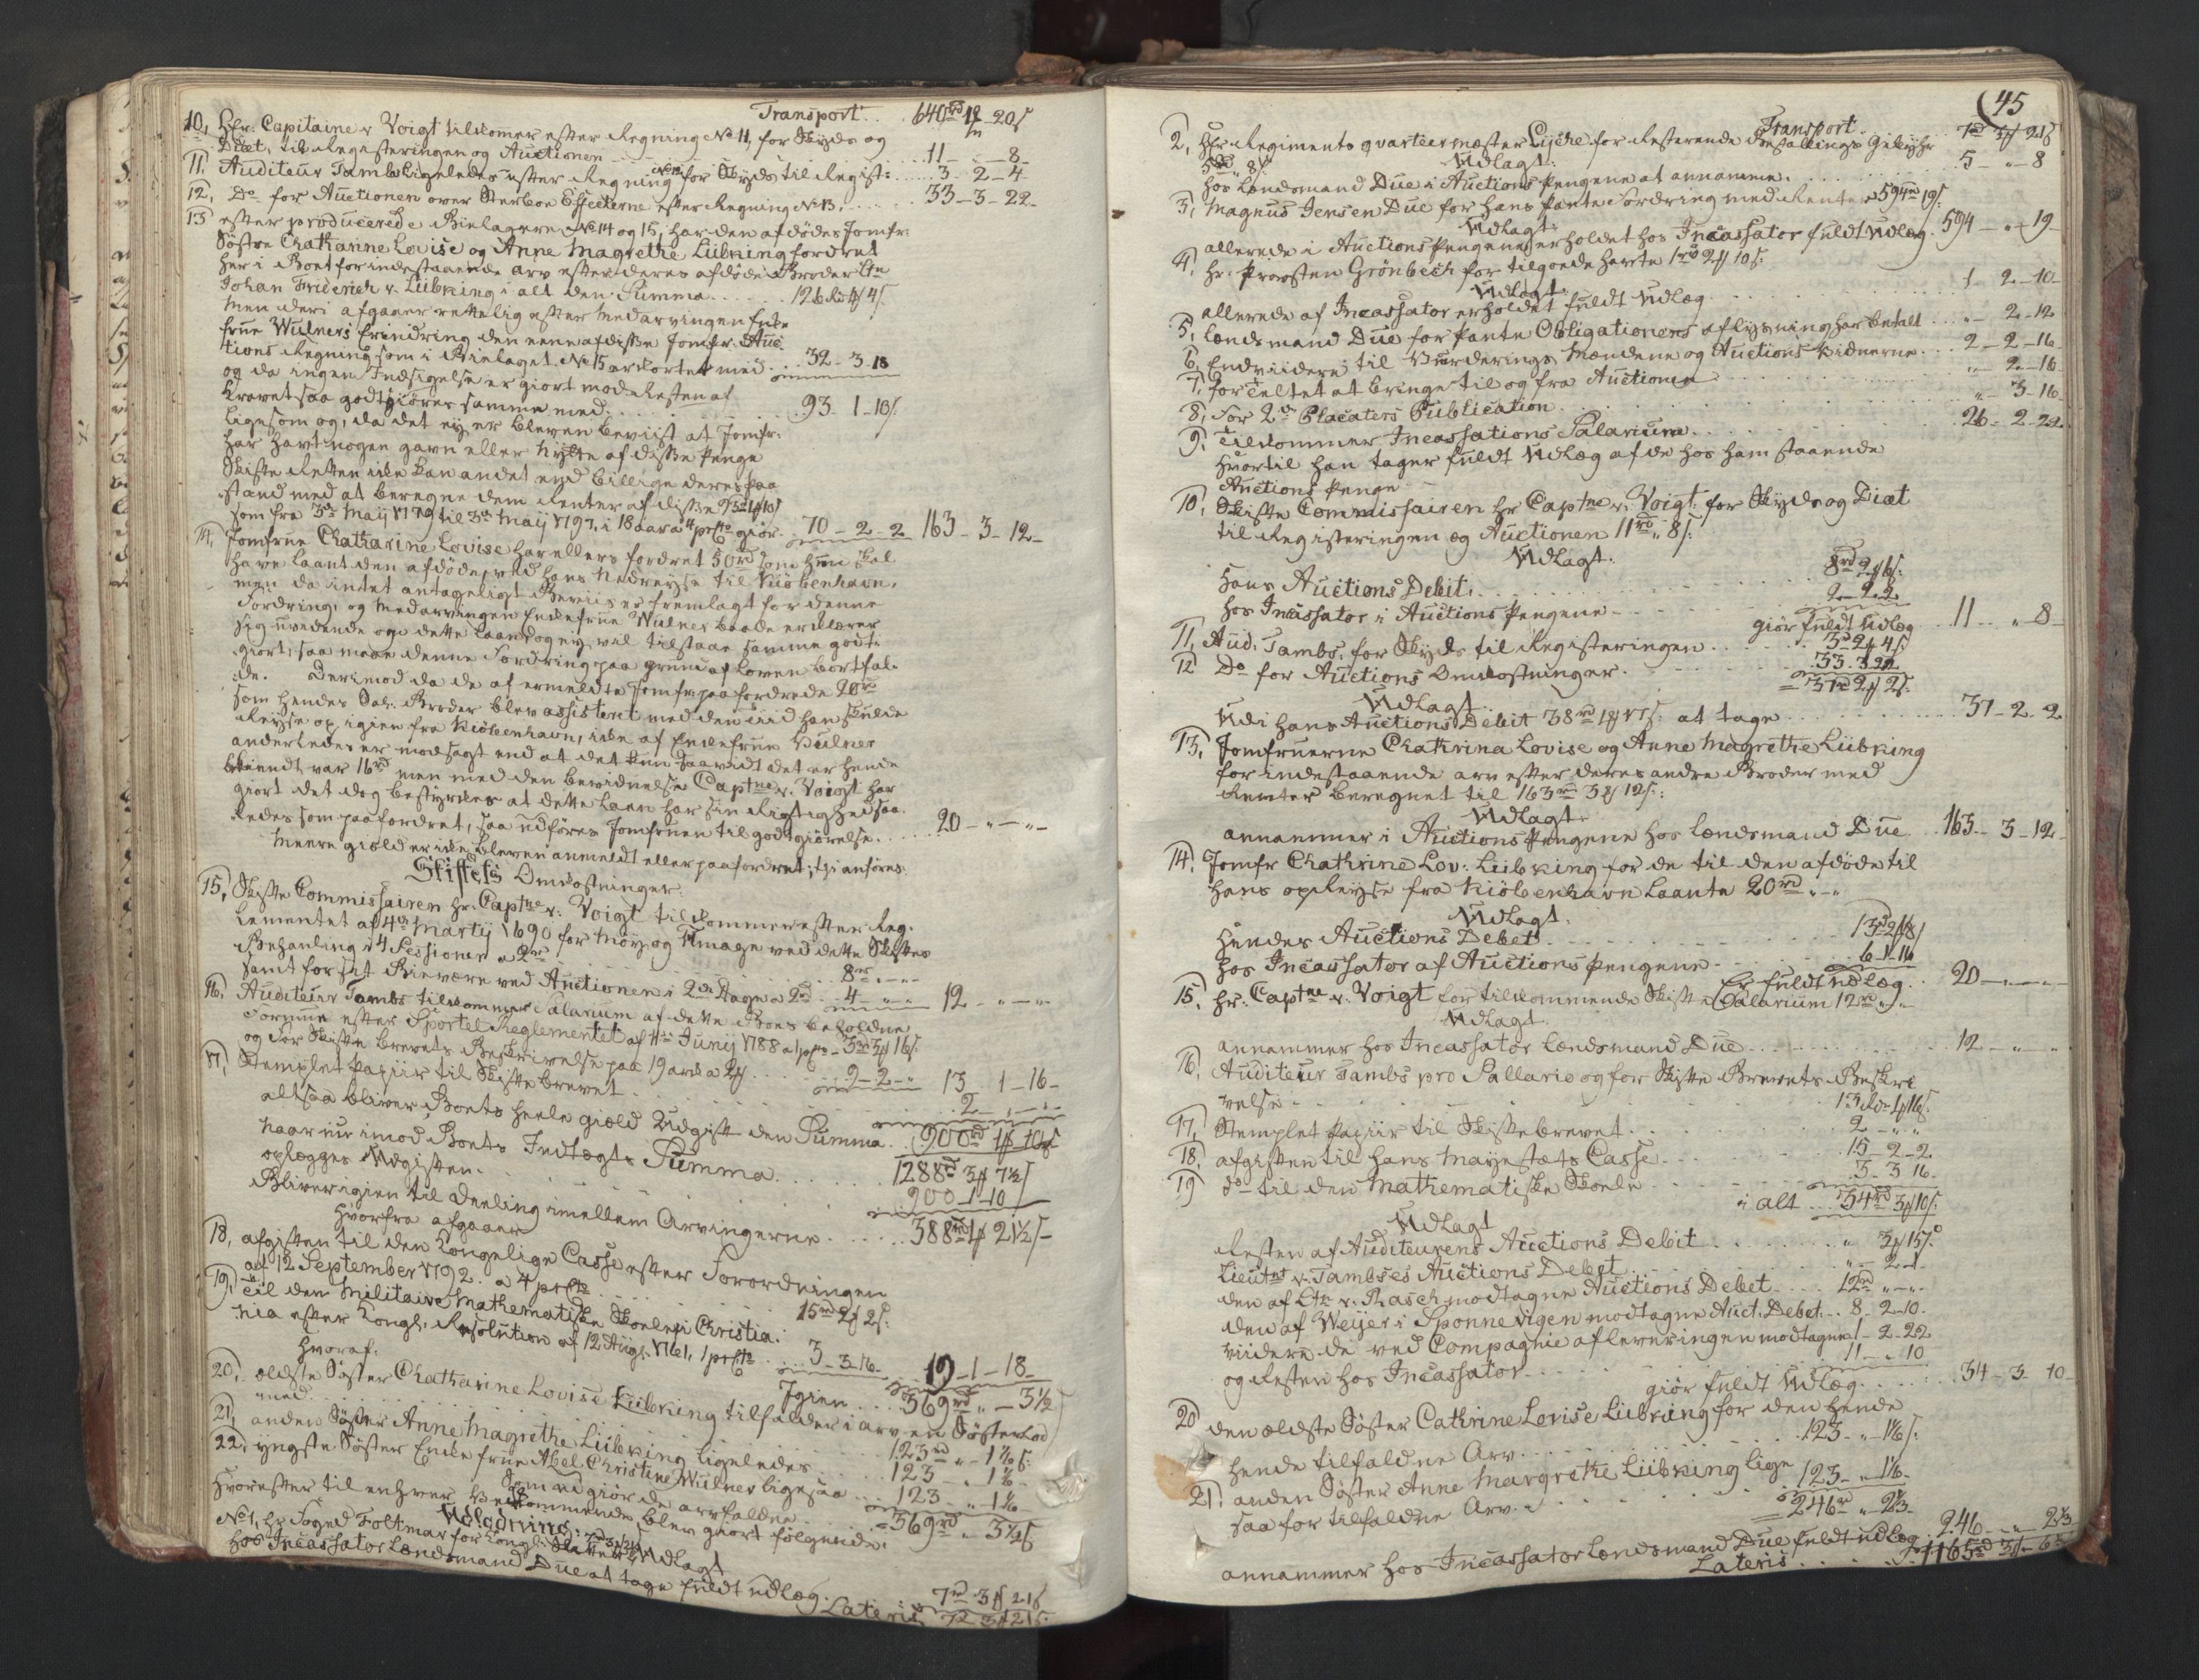 Transport . . 640rd 1[ort] 20ſ
10, Hr: Capitaine v Voigt tilkomer efter Regning No 11, for Skyds og
Diæt, til Registeringen og Auctionen . . . 11 - . - 8 -
11. Auditeur Tambs ligeledes efter Regning No 12 for Skyds til Regist: . . . 3 - 2 - 4
12, Do for Auctionen over Sterboe Effecterne efter Regning No 13. . . . 33 - 3 - 22 -
13 efter producerede Bielagere No 14 og 15, har den afdødes Jomfr:
Søstre Chatharine Lovise og Anne Magrethe Lübking fordret
her i Boet for indestaaende arv efter deres afdøde Broder Ltn
Johan Friderich v. Lübking i alt den Summa . . . 126
Men deri afgaaer rettelig efter Medarvingen Enke
frue Wulners Erindring den eene af disse Jomfr: Auc-
tions Regning som i Bielaget No 15 er kortet med . . 32 - 3 - 18
og da ingen Indsigelse er giort mod Resten af
Kravet saa godtgiøres samme med . . . 93 - 1 - 10ſ
Ligesom og, da det ey er bleven beviist at Jomfr:
har havt nogen gavn eller Nytte af disse Penge
Skifte Retten ikke kan andet end billige deres paa
stand med at beregne dem Renter af disse 93rd 1 10ſ
som fra 3de Maij 1779 til 3de Maij 1797, i 18 aar a 4 prCto giør . . 70 - 2 - 2 163 - 3 - 12 -
14, Jomfrue Chatharine Lovise har ellers fordret 50rd som hun skal
have laant den afdøde, ved hans Nedreyse til Kiöbenhavn,
men da intet antageligt Beviis er fremlagt for denne
Fordring, og Medarvingen Enkefrue Wulner baade erklærer
sig uvidende om dette Laan og ey vil tilstaae samme godt-
giort, saa maae denne Fordring paa grund af Loven bortfal-
de. Derimod da de af ermeldte Jomfr: paafordrede 20rd
som hendes Sal: Broder blev assisteret med den tiid han skulde
Reyse op igien fra Kiöbenhavn, ikke af Enkefrue Wulner
anderledes er modsagt end at det kun saavidt det er hende
bekiendt var 16rd men med den bevidnelse Captne v. Voigt har
giort det dog bestyrkes at dette Laan har sin Rigtighed saa-
ledes som paafordret, saa udføres Jomfruen til godtgiørelse . . . 20 - " - " -
Meere gield er ikke bleven anmeldt eller paafordret; thi anføres:
Skiftets Omkostninger.
15, Skifte Commissairen hr. Captne v: Voigt tilkommer efter Reg-
lementet af 4de Martij 1690 for Møye og Umage ved dette Skiftes
Behanling i 4 Sessioner a 2rd . . . 8rd - " - "
samt for sit Nærværelse ved Auctionen i 2de Dage a 2rd . . 4 - " - " 12 - " - " -
16, Auditeur Tambs tilkommer Salarium af dette Boes beholdne
Formue efter Sportel Reglementet af 11te Junij 1788 a 1 prCto - 3rd 3 16ſ:
og for Skifte brevets Beskrivelse paa 19 ark a 2 . . . 9 - 2 - " 13 - 1 - 16 -
17, Stemplet Papiir til Skiftebrevet . . . 2 - " - " -
altsaa bliver Boets heele gield Udgift den Summa . . 900rd 1 10ſ
Naar nu imod Boets Indtægts Summa . . . 1288rd 3 7½ſ
oplægges Udgiften . . . 900 - 1 - 10
Bliver igien til Deeling imellem Arvingerne . . . 388rd 1 21½ſ -
hvorfra afgaaer
18, afgiften til den Kongelige Casse efter Forordningen
af 12 September 1792. a 4 prCto . . . 15rd 2 2ſ:
19, til den Militaire Mathematiske Skoele i Christia-
nia efter Kongl: Resolution af 12 Augs: 1761, 1 prCto . . 3 - 3 - 16 - 19 - 1 - 18 -
Igien . . . 369rd " - 3½
hvoraf:
20, ældste Søster Chatharine Lovise Lübking tilfalder i arv en Søsterlod
med . . . 123rd " - 1 ſ:
21, anden Søster Anne Magrethe Lübking ligeledes . . . 123 - " 1
22, yngste Søster Enke frue Abel Christine Wulner ligesaa . . 123 - " - 1
Som udgiør de arvfaldne . . . 369rd " 3½ſ
hvorefter til enhver Vedkommende blev giort følgende:
Udlodning.
No 1, hr Foged Foltmar for Kongl: Skatter 7rd 3 21ſ Udlagt
hos Incassator Lændsmand Due at tage fuldt udlæg . . 7rd 3 21ſ
Lateris 7rd 3 21ſ.
45
Transport . . 7rd 3 21ſ
2, Hr Regiments qvarteermester Lycke for Resterende Bestallings Gebyhr
5rd " 8ſ: Udlagt: 5 - " - 8
hos Lændsmand Due i Auctions Pengene at annamme.
3, Magnus Jensen Due for hans Pante Fordring med Renter 594rd 19ſ:
Udlagt:
allerede i Auctions Pengene erholdet hos Incassator fuldt Udlæg . 594 - " - 19 -
4, hr: Provsten Grönbech for tilgoede havte 1rd 2 10ſ:
Udlagt:
allerede af Incassator erholdet fuldt Udlæg . . . 1 - 2 - 10 -
5, Lændsmand Due for Pante Obligationens aflysning har betalt . . . " - 2 - 12
6, Endviidere til Vurderings Mændene og Auctions Vidnerne . . . 2 - 2 - 16 -
7, for Teltet at bringe til og fra Auctionen . . . " - 2 - 16
8, For 2de Placaters Publication . . . " - 3 - 16
9, Tilkommer Incassations Salarium . . . 26 - 2 - 22
Hvortil han tager fuldt Udlæg af de hos ham staaende
Auctions Penge -
10, Skifte Commissairen hr Captne v. Voigt for Skyds og Diæt
til Registeringen og Auctionen 11rd " 8ſ:
Udlagt:
Hans Auctions Debit. . . . 8rd 2 6ſ:
hos Incassator i Auctions Pengene . . . 2 - 2 - 2
giør fuldt Udlæg . . . 11 - " 8 -
11, Aud: Tambs. for Skyds til Registeringen . . . 3rd 2 4ſ
12 Do for Auctions Omkostninger . . . 33 - 3 - 22
= 37rd 2 2ſ:
Udlagt:
Udi hans Auctions Debit 38rd 1 17ſ: at tage . . . 37 - 2 - 2
13, Jomfruerne Chathrina Lovise og Anne Magrethe Lübking
for indestaaende arv efter deres andre Broder med
Renter beregnet til 163rd 3 12ſ:
Udlagt:
annammer i Auctions Pengene hos Lændsmand Due . . 163 - 3 - 12 -
14, Jomfr Chathrine Lov: Lübking for de til den afdøde til
hans op Reyse fra Kiöbenhavn laante 20rd " - "
Udlagt:
Hendes Auctions Debet . . . 13rd 2 8
hos Incassator af Auctions Pengene . . . 6 - 1 - 16
Er fuldt udlæg . . 20 - " - " -
15, hr. Captne v. Voigt for tilkommende Skifte Salarium 12rd " - "
Udlagt:
annammer hos Incassator Lændsmand Due . . . 12 - " - "
16, Auditeur Tambs pro Sallario og for Skifte Brevets Beskri
velse . . . 13rd 1 16ſ:
17, Stemplet Papiir til Skiftebrevet . . . 2 - " - "
18, afgiften til hans Mayestæts Casse . . . 15 - 2 - 2
19 do - til den Mathematiske Skoele . . . 3 - 3 - 16 -
i alt . . . 34rd 3 10ſ:
Udlagt
Resten af Auditeurens Auctions Debit . . . " 3 15ſ:
Lieutnt v. Tambses Auctions Debet . . . " - 2 - 1
den af Ltn v. Rasch modtagne Auctions Debet . . . 12rd " - "
den af Weijer i Sponnevigen modtagne Auct: Debet . . 8 - 2 - 10 -
viidere de ved Compagnie afleveringen modtagne 1 - 2 - 22
og Resten hos Incassator . . . 11 - " 10
giør fuldt Udlæg . . . 34 - 3 - 10 -
20, den ældste Søster Cathrine Lovise Lübking for den hende
hende tilfaldne Arv . . . 123 - " 1 ſ:
21, anden Søster Anne Margrethe Lübking lige
saa for tilfaldne Arv . . . 123 - " 1
= 246rd " 2⅓
annammer hos Incassator Lændsmand Due fuldt udlæg . 246 - " 2⅓
Lateris . . . 1165rd 3